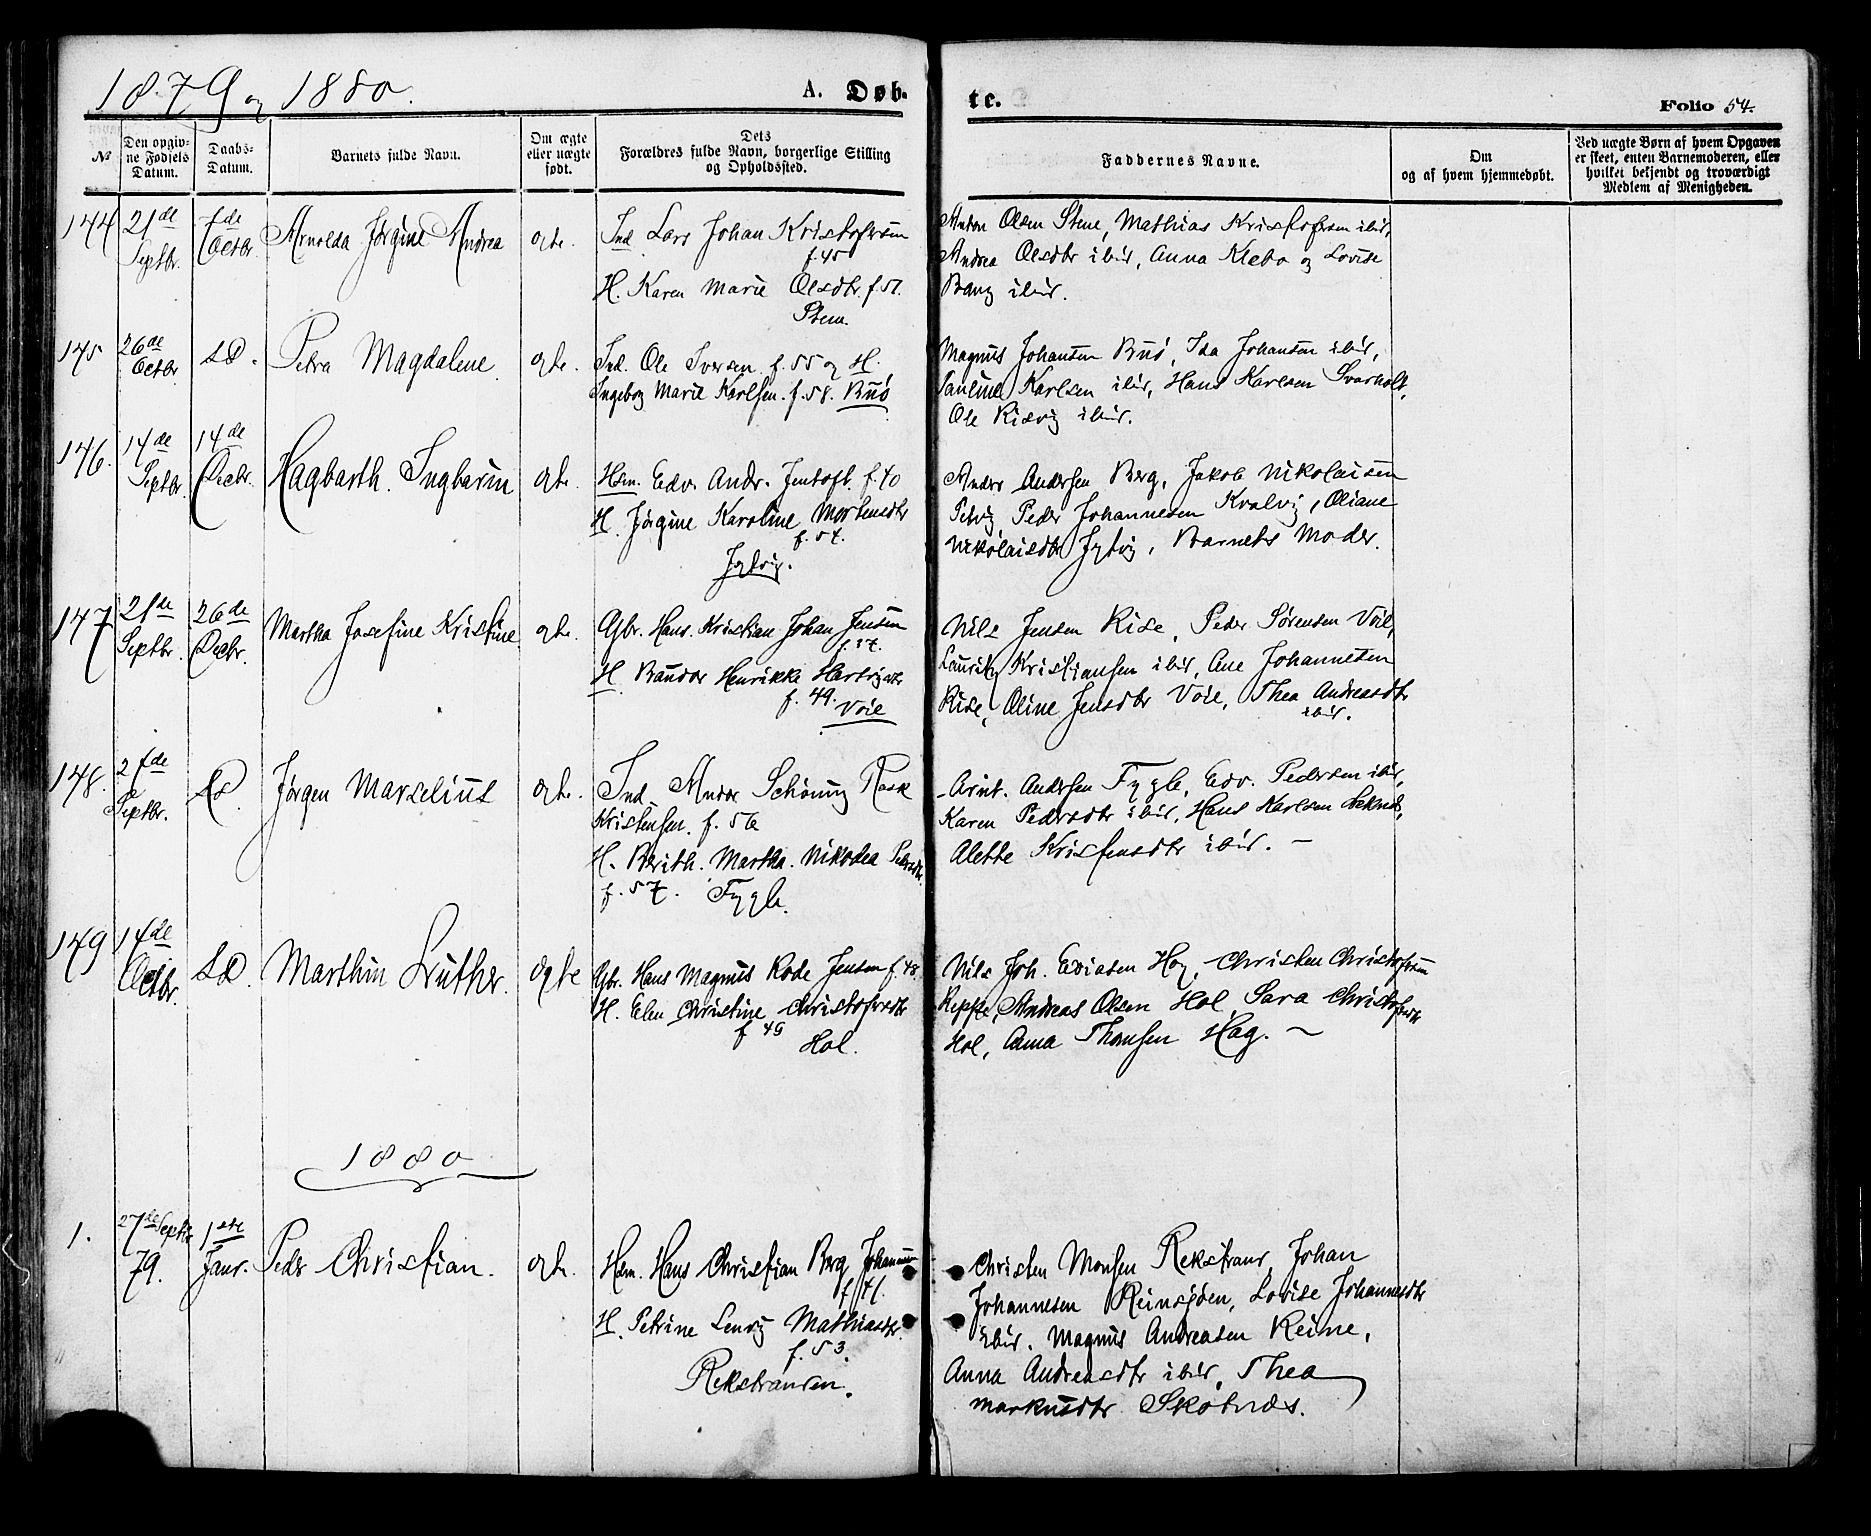 1879 og 1880.
A. Døb-
te.
Folio 54.
№
Den opgiv-
ne Fødsels
Datum.
Daabs-
Datum.
Barnets fulde Navn.
Om ægte
eller uægte
født.
Dets
Forældres fulde Navn, borgerlige Stilling
og Opholdssted.
Faddernes Navne.
Om
og af hvem hjemmedøbt.
Ved uægte Børn af hvem Opgaven
er skeet, enten Barnemoderen, eller
hvilket bekjendt og troværdigt
Medlem af Menigheden.
144
21de
Septbr.
7de
Octbr.
Arnolda Jørgine Andrea
egte.
Ind Lars Johan Kristofersen
f. 45
H. Karen Marie Olsdtr. f 51.
Stene.
Anton Olsen Stene, Mathias Kristofersen ibid,
Andrea Olsdtr ibid, Anna Klebo og Lovise
Bang ibid.
145
26de
Octbr.
S.D.
Petra Magdalene
egte.
Ind. Ole Iversen f. 55 og H.
Ingeborg Marie Karlsen. f. 58. Buø
Magnus Johansen Buø, Ida Johansen ibid,
Pauline Karlsen ibid, Hans Karlsen Svarholt,
Ole Risvig ibid.
146.
14de
Septbr.
14de
Decbr.
Hagbarth Ingbarin
egte.
Hsm. Edv. Andr. Jentoft. f. 40
H. Jørgine Karoline Mortensdtr
f. 54.
Andr. Andersen Berg, Jakob Nikolaisen
Peder Johannesen Kvalvig, Oliane
Nikolaisdtr, Barnets Moder.
147
21de
Septbr.
26de
Decbr.
Martha Josefine Kristine
egte.
Gbr. Hans Kristian Johan Jensen
H. Henrikke Hartvigsdtr
f. 49. Voie
Nils Jensen Rise, Peder Sørensen Voie,
Lauritz Kristiansen ibid, Ane Johannesen
Rise, Oline Jensdtr Voie, Thea Andreasdtr
ibid.
148.
27de
Septbr.
S.D.
Jørgen Marselius
egte.
Ind. Andor Schøning Rask
Kristensen. f. 56
H. Berith. Martha. Nikodea Pedersdtr.
f. 57. Fygle.
Arnt. Andersen Fygle, Edv. Pedersen ibid,
Karen Pedersdtr ibid, Hans Karlsen Leknes,
Alette Kristensdtr ibid. –
149
14de
Octbr.
S.D.
Marthin Luther.
egte
Gbr. Hans Magnus Rode Jensen f. 48.
H. Elen Christine Christofersdtr
f 49
Hol.
Nils Joh. Eviasen Hag, Christen Christofersen
Reppe, Andreas Olsen Hol, Sara Christofersdtr
Hol, Anna Thomsen Hag. –
1880
1.
27de Septbr
79.
1ste
Janr.
Peder Christian.
egte.
Hsm. Hans Christian Berg Johannesen
f 41.
H. Petrine Lenvig Mathiasdtr.
f. 53.
Rekstranden.
Christen Monsen Rekstrand, Johan
Johannesen Reinsjøen, Lovise Johannesdtr
ibid. Magnus Andreasen Reine,
Anna Andreasdtr ibid, Thea
Markusdtr Skotnes.